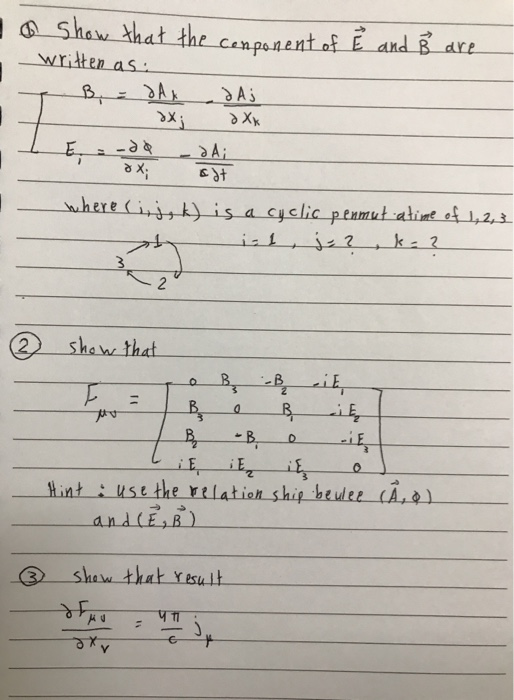 ① Show that the conponent of E⃗ and B⃗ are
written as:
B_i = ∂A_k/∂x_j - ∂A_j/∂x_k
E_i = -∂φ/∂x_i - ∂A_i/c∂t
where (i,j,k) is a cyclic penmutatime of 1,2,3
i=1, j=?, k=?
1
3
2
② show that
F_μν = [ 0 B_3 -B_2 -iE_1
B_3 0 B_1 -iE_2
B_2 -B_1 0 -iE_3
iE_1 iE_2 iE_3 0 ]
Hint : use the relation ship bewlee (A⃗, φ)
and (E⃗, B⃗)
③ show that result
∂F_μν/∂x_ν = 4π/c j_μ